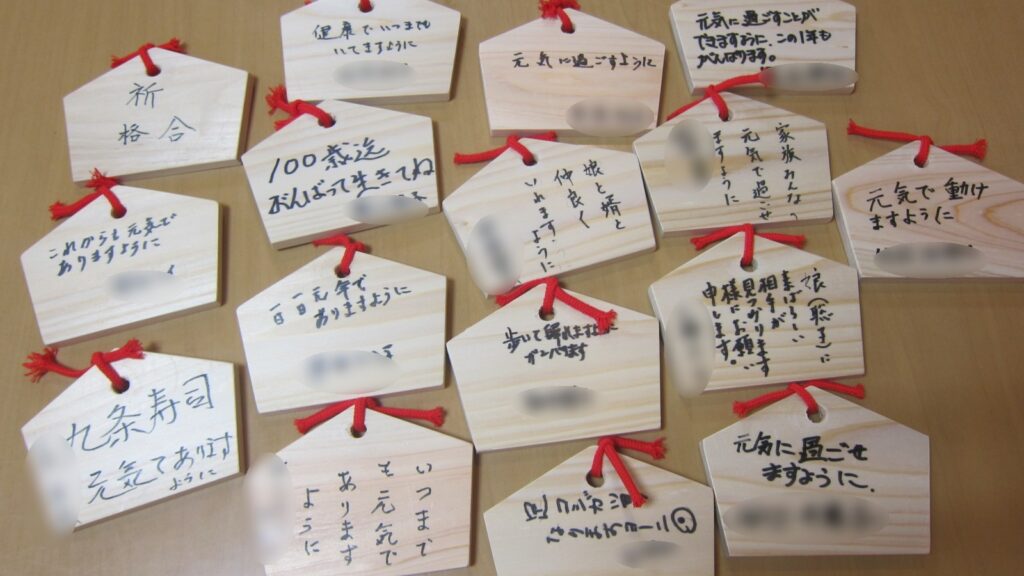 祈
合格
健康でいつまでも
いてますように
元気に過ごすように
元気に過ごすことが
できますように、この1年も
がんばります。
100歳迄
がんばって生きてね
娘と婿と
仲良く
いれますように
家族みんなっ
元気で過ごせ
ますように
元気で動け
ますように
これからも元気で
ありますように
一日一日元気で
ありますように
歩いて帰れますように
ガンバます
娘(聡子)に
素ばらしい
相手が
見つかります
様にお願い
申します。
九条寿司
元気でありますす
ように
いつまで
も元気で
あります
ように
なりますように
元気に過ごせ
ますように.